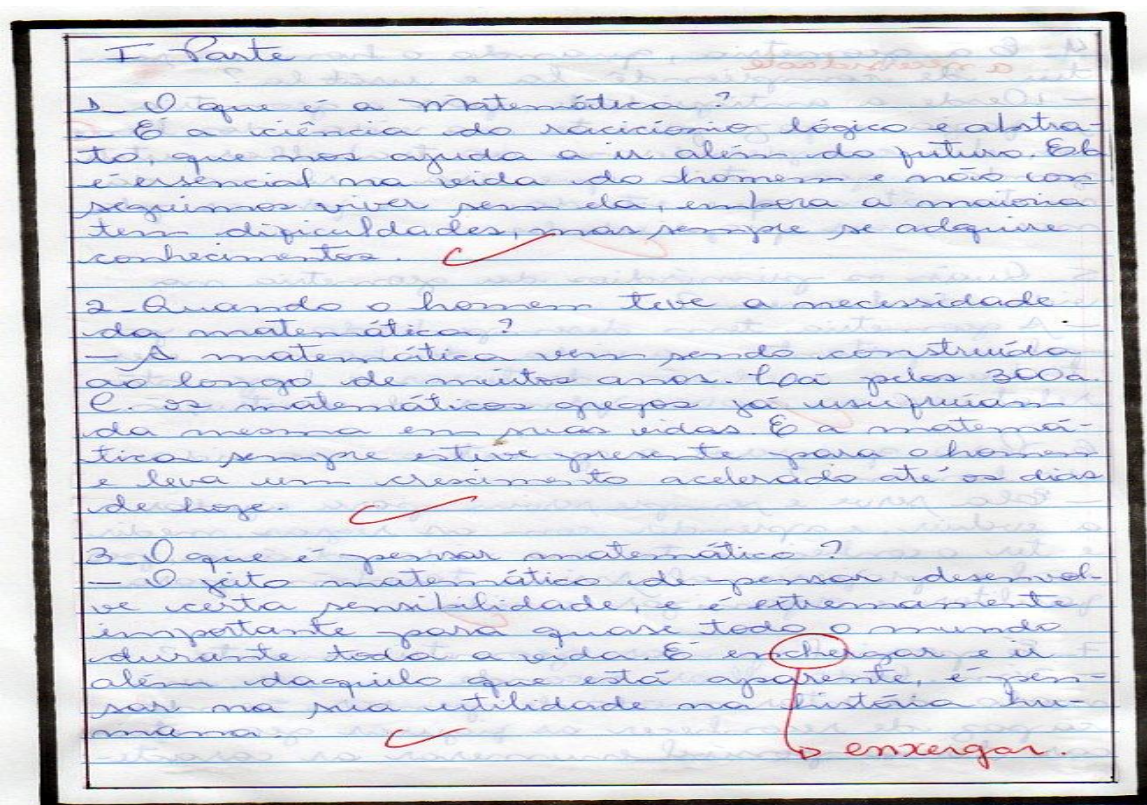 I Parte
1- O que é a matemática?
- É a ciência do raciciocínio lógico e abstra-
to, que nos ajuda a ir além do futuro. Ela
é essencial na vida do homem e não con-
seguimos viver sem ela, embora a maioria
tem dificuldades, mas sempre se adquire
conhecimentos.
2- Quando o homem teve a necessidade
da matemática?
- A matemática vem sendo construída
ao longo de muitos anos. Lá pelos 300a.
C. os matemáticos gregos já usufruíam
da mesma em suas vidas. E a matemá-
tica sempre estive presente para o homem
e leva um crescimento acelerado até os dias
de hoje.
3- O que é pensar matemático?
- O jeito matemático de pensar desenvol-
ve certa sensibilidade, e é extremamente
importante para quase todo o mundo
durante toda a vida. É enchergar e ir
além daquilo que está aparente, é pen-
sar na sua utilidade na história hu-
mana.
enxergar.